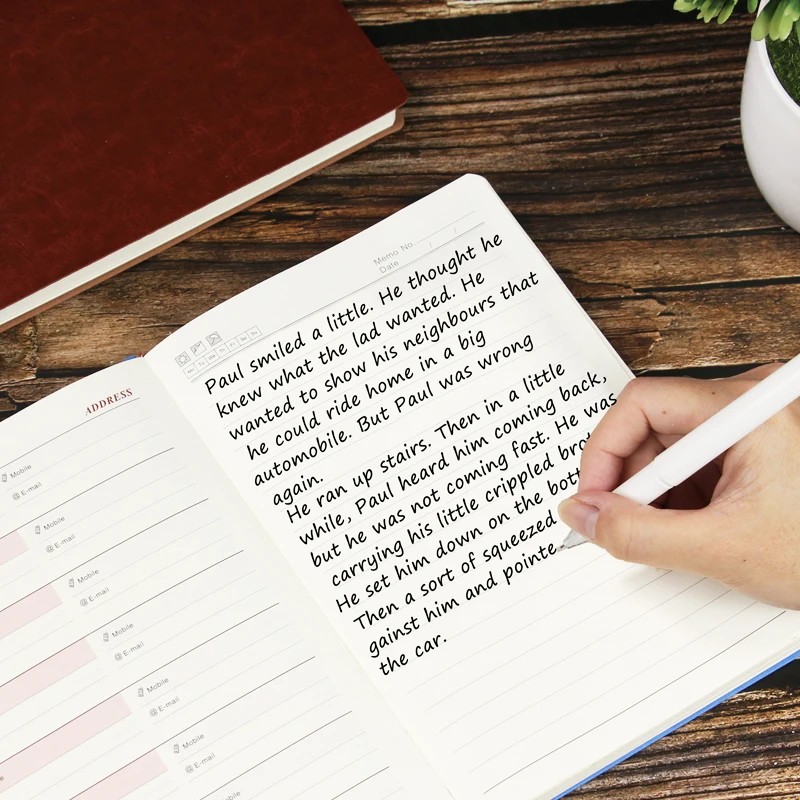 ADDRESS
Mobile
@E-mail
Mobile
@E-mail
Mobile
@E-mail
Mobile
@E-mail
Mobile
@E-mail
Mobile
@E-mail
Mobile
Memo No.
Date / /
Mo Tu We Th Fr Sa Su
Paul smiled a little. He thought he
knew what the lad wanted. He
wanted to show his neighbours that
he could ride home in a big
automobile. But Paul was wrong
again.
He ran up stairs. Then in a little
while, Paul heard him coming back,
but he was not coming fast. He was
carrying his little crippled
He set him down on the
Then a sort of squeezed
gainst him and
the car.